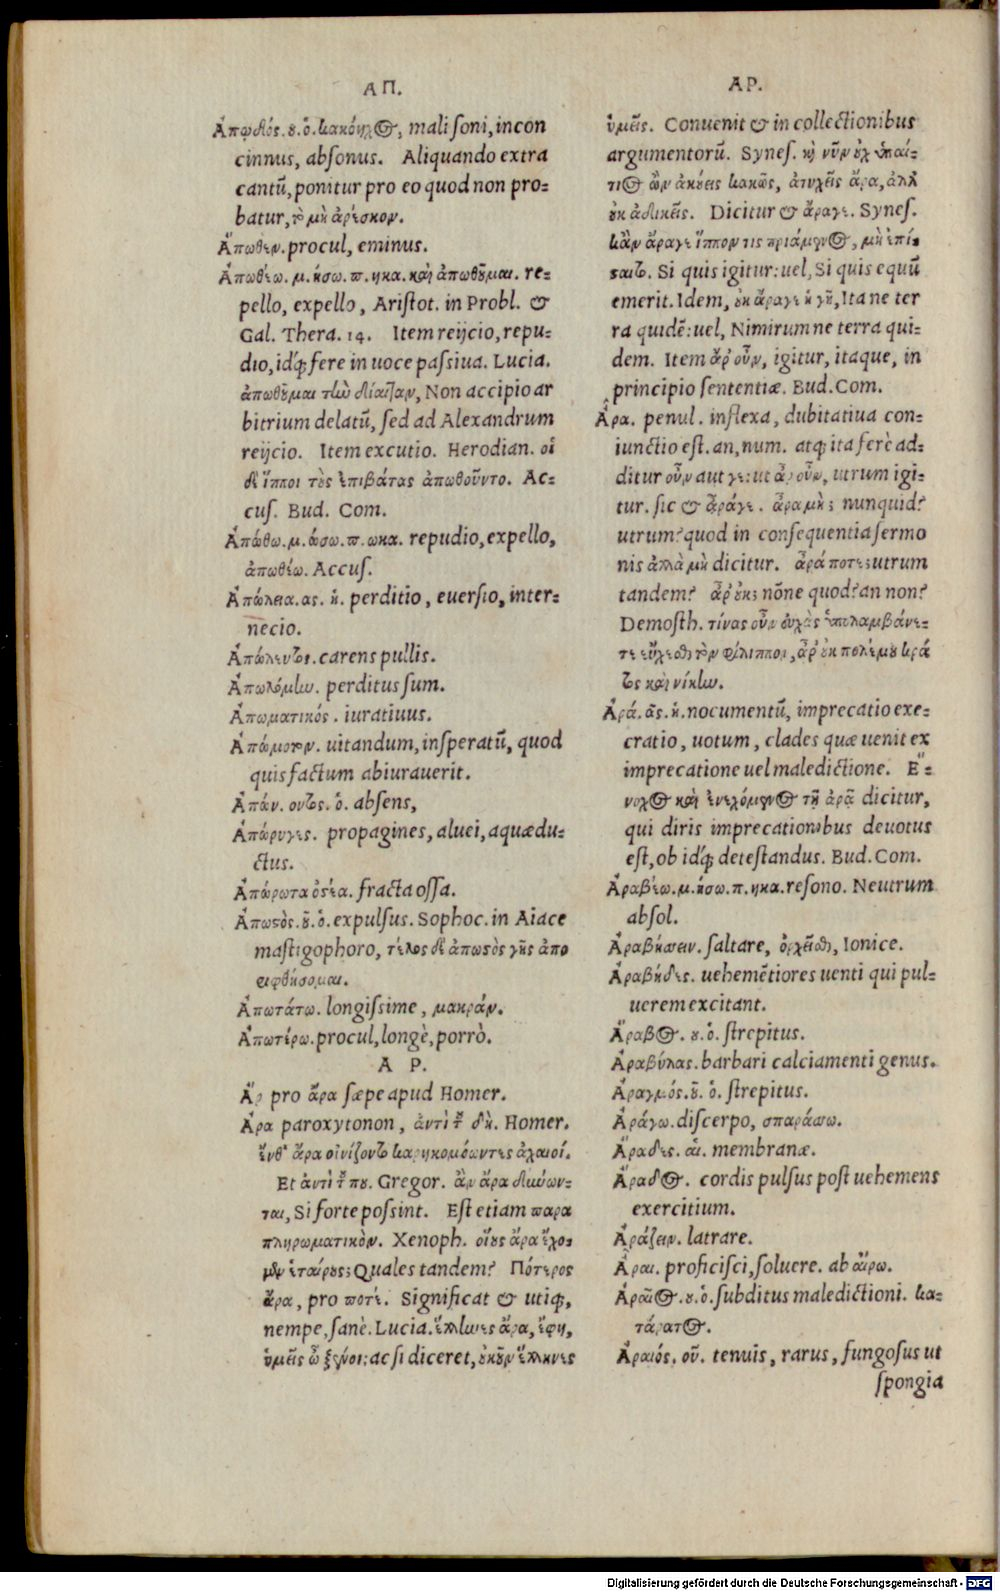 ΑΠ.
Ἀπῳδός. ου. ὁ. κακόηχος, mali soni, incon
cinnus, absonus. Aliquando extra
cantũ, ponitur pro eo quod non pro=
batur, τὸ μὴ ἀρέσκον.
Ἄπωθεν. procul, eminus.
Ἀπωθέω. μ. ήσω. π. ηκα. καὶ ἀπωθοῦμαι. re=
pello, expello, Aristot. in Probl. &
Gal. Thera. 14. Item reijcio, repu=
dio, idq́; fere in uoce passiua. Lucia.
ἀπωθοῦμαι τὴν δίαιταν, Non accipio ar
bitrium delatũ, sed ad Alexandrum
reijcio. Item excutio. Herodian. οἱ
δὲ ἵπποι τοὺς ἐπιβάτας ἀπωθοῦντο. Ac=
cus. Bud. Com.
Ἀπώθω. μ. ώσω. π. ωκα. repudio, expello,
ἀπωθέω. Accus.
Ἀπώλεια. ας. ἡ. perditio, euersio, inter=
necio.
Ἀπώλευτος. carens pullis.
Ἀπωλόμην. perditus sum.
Ἀπωματικός. iuratiuus.
Ἀπώμοτον. uitandum, insperatũ, quod
quis factum abiurauerit.
Ἀπών. οντος. ὁ. absens,
Ἀπώρυγες. propagines, aluei, aquædu=
ctus.
Ἀπώρωτα ὀστέα. fracta ossa.
Ἀπωστὸς. οῦ. ὁ. expulsus. Sophoc. in Aiace
mastigophoro, τέλος δὲ ἀπωστὸς γῆς ἀπο
ῤιφθήσομαι.
Ἀπωτάτω. longissime, μακράν.
Ἀπωτέρω. procul, longè, porrò.
Α Ρ.
Ἄρ pro ἄρα sæpe apud Homer.
Ἄρα paroxytonon, ἀντὶ τοῦ δὴ. Homer.
ἔνθ' ἄρα οἰνίζοντο καρηκομόωντες ἀχαιοί.
Et ἀντὶ τοῦ που. Gregor. ἂν ἄρα δύνων=
ται, Si forte possint. Est etiam παρα
πληρωματικὸν. Xenoph. οἵους ἄρα ἔχο=
μεν ἑταίρους; Quales tandem? Πότερος
ἄρα, pro ποτέ. Significat & utiq;,
nempe, sanè. Lucia. ἕλληνες ἄρα, ἔφη,
ὑμεῖς ὦ ξένοι: ac si diceret, οὐκοῦν ἕλληνες
ΑΡ.
ὑμεῖς. Conuenit & in collectionibus
argumentorũ. Synes. καὶ νῦν οὐχ ὑπαί=
τιος ὢν ἀκούεις κακῶς, ἀτυχεῖς ἄρα, ἀλλ'
οὐκ ἀδικεῖς. Dicitur & ἄραγε. Synes.
κἂν ἄραγε ἵππον τις πριάμενος, μὴ ἐπί=
σαιτο. Si quis igitur: uel, Si quis equũ
emerit. Idem, οὐκ ἄραγε ἡ γῆ, Ita ne ter
ra quidẽ: uel, Nimirum ne terra qui=
dem. Item ἄρ' οὖν, igitur, itaque, in
principio sententiæ. Bud. Com.
Ἆρα. penul. inflexa, dubitatiua con=
iunctio est. an, num. atq; ita ferè ad=
ditur οὖν aut γε: ut ἆρ' οὖν, utrum igi=
tur. sic & ἆράγε. ἆρα μὴ; nunquid?
utrum? quod in consequentia sermo
nis ἀλλὰ μὴ dicitur. ἆρά ποτε; utrum
tandem? ἆρ' οὐκ; nõne quod? an non?
Demosth. τίνας οὖν εὐχὰς ὑπολαμβάνε=
τε εὔχεσθαι τὸν φίλιππον, ἆρ' οὐκ πολέμου κρά
τος καὶ νίκην.
Ἀρά. ᾶς. ἡ. nocumentũ, imprecatio exe=
cratio, uotum, clades quæ uenit ex
imprecatione uel maledictione. Ἔ=
νοχος καὶ ἐνεχόμενος τῇ ἀρᾷ dicitur,
qui diris imprecationibus deuotus
est, ob idq́; detestandus. Bud. Com.
Ἀραβέω. μ. ήσω. π. ηκα. resono. Neutrum
absol.
Ἀραβήσσειν. saltare, ὀρχεῖσθαι, Ionice.
Ἀραβήδες. uehemẽtiores uenti qui pul=
uerem excitant.
Ἄραβος. ου. ὁ. strepitus.
Ἀραβύλας. barbari calciamenti genus.
Ἀραγμός. οῦ. ὁ. strepitus.
Ἀράγω. discerpo, σπαράσσω.
Ἄραδες. αἱ. membranæ.
Ἄραδος. cordis pulsus post uehemens
exercitium.
Ἀράζειν. latrare.
Ἆραι. proficisci, soluere. ab αἴρω.
Ἀραῖος. ου. ὁ. subditus maledictioni. κα=
τάρατος.
Ἀραιός. οῦ. tenuis, rarus, fungosus ut
spongia
Digitalisierung gefördert durch die Deutsche Forschungsgemeinschaft - DFG